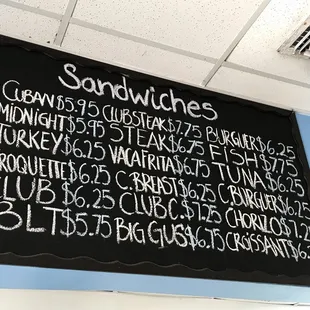 Sandwiches
CUBAN $5.95 CLUB STEAK $7.75 BURGUER $6.25
MIDNIGHT $5.95 STEAK $6.75 FISH $7.75
TURKEY $6.25 VACA FRITA $6.75 TUNA $6.25
CROQUETTE $6.25 C.BREAST $6.25 C.BURGUER $6.25
CLUB $6.25 CLUB C. $7.25 CHORIZO $7.25
BLT $5.75 BIG GUS $6.75 CROISSANT $6.